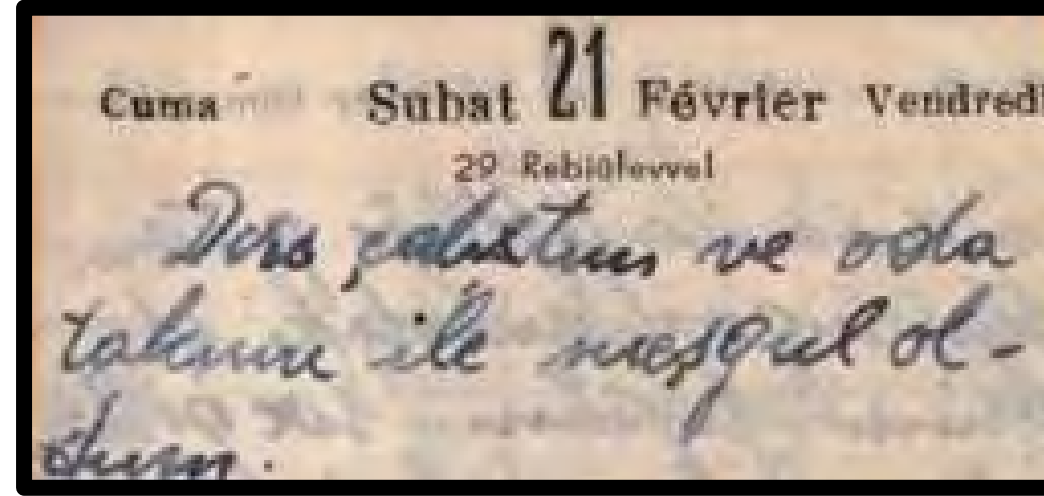 Cuma Şubat 21 Février Vendredi
29 Rebiülevvel
Ders çalıştım ve oda
takımı ile meşgul ol-
dum.